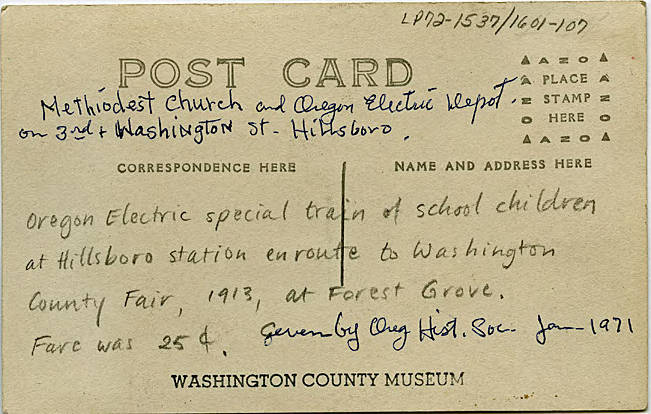 LP72-1537/1601-107
POST CARD
AZO
PLACE
STAMP
HERE
AZO
Methiodest Church and Oregon Electric Depot.
on 3rd + Washington St. Hillsboro.
CORRESPONDENCE HERE
NAME AND ADDRESS HERE
Oregon Electric special train of school children
at Hillsboro station enroute to Washington
County Fair, 1913, at Forest Grove.
Fare was 25 ¢.
Geven by Oreg Hist. Soc. Jan - 1971
WASHINGTON COUNTY MUSEUM